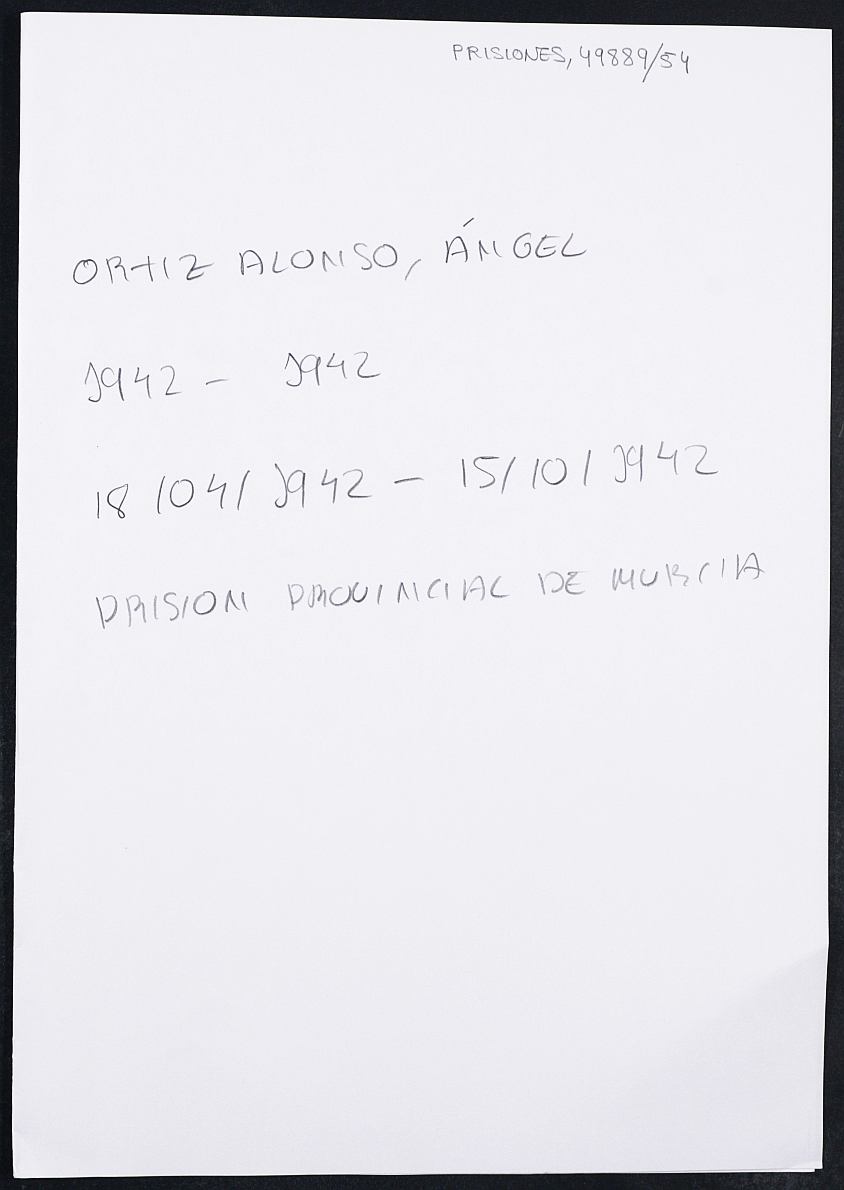 PRISIONES, 49889/54
ORTIZ ALONSO, ÁNGEL
1942 - 1942
18/04/1942 - 15/10/1942
PRISION PROVINCIAL DE MURCIA